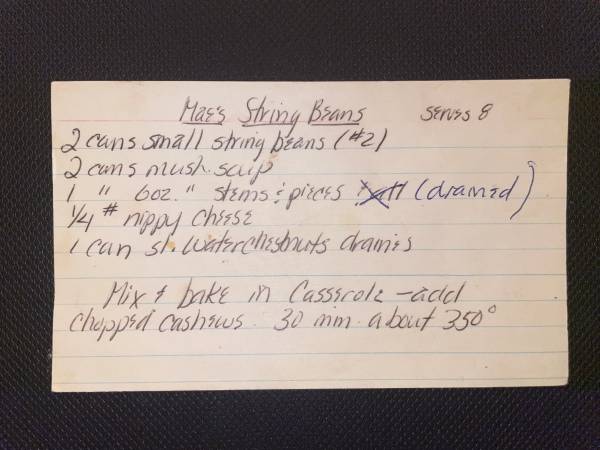 Mae's String Beans serves 8
2 cans small string beans (#2)
2 cans mush. soup
1 " 6oz. " stems & pieces (drained)
1/4 # nippy cheese
1 can sl. waterchestnuts drained
Mix & bake in Casserole - add
chopped cashews. 30 min. about 350°